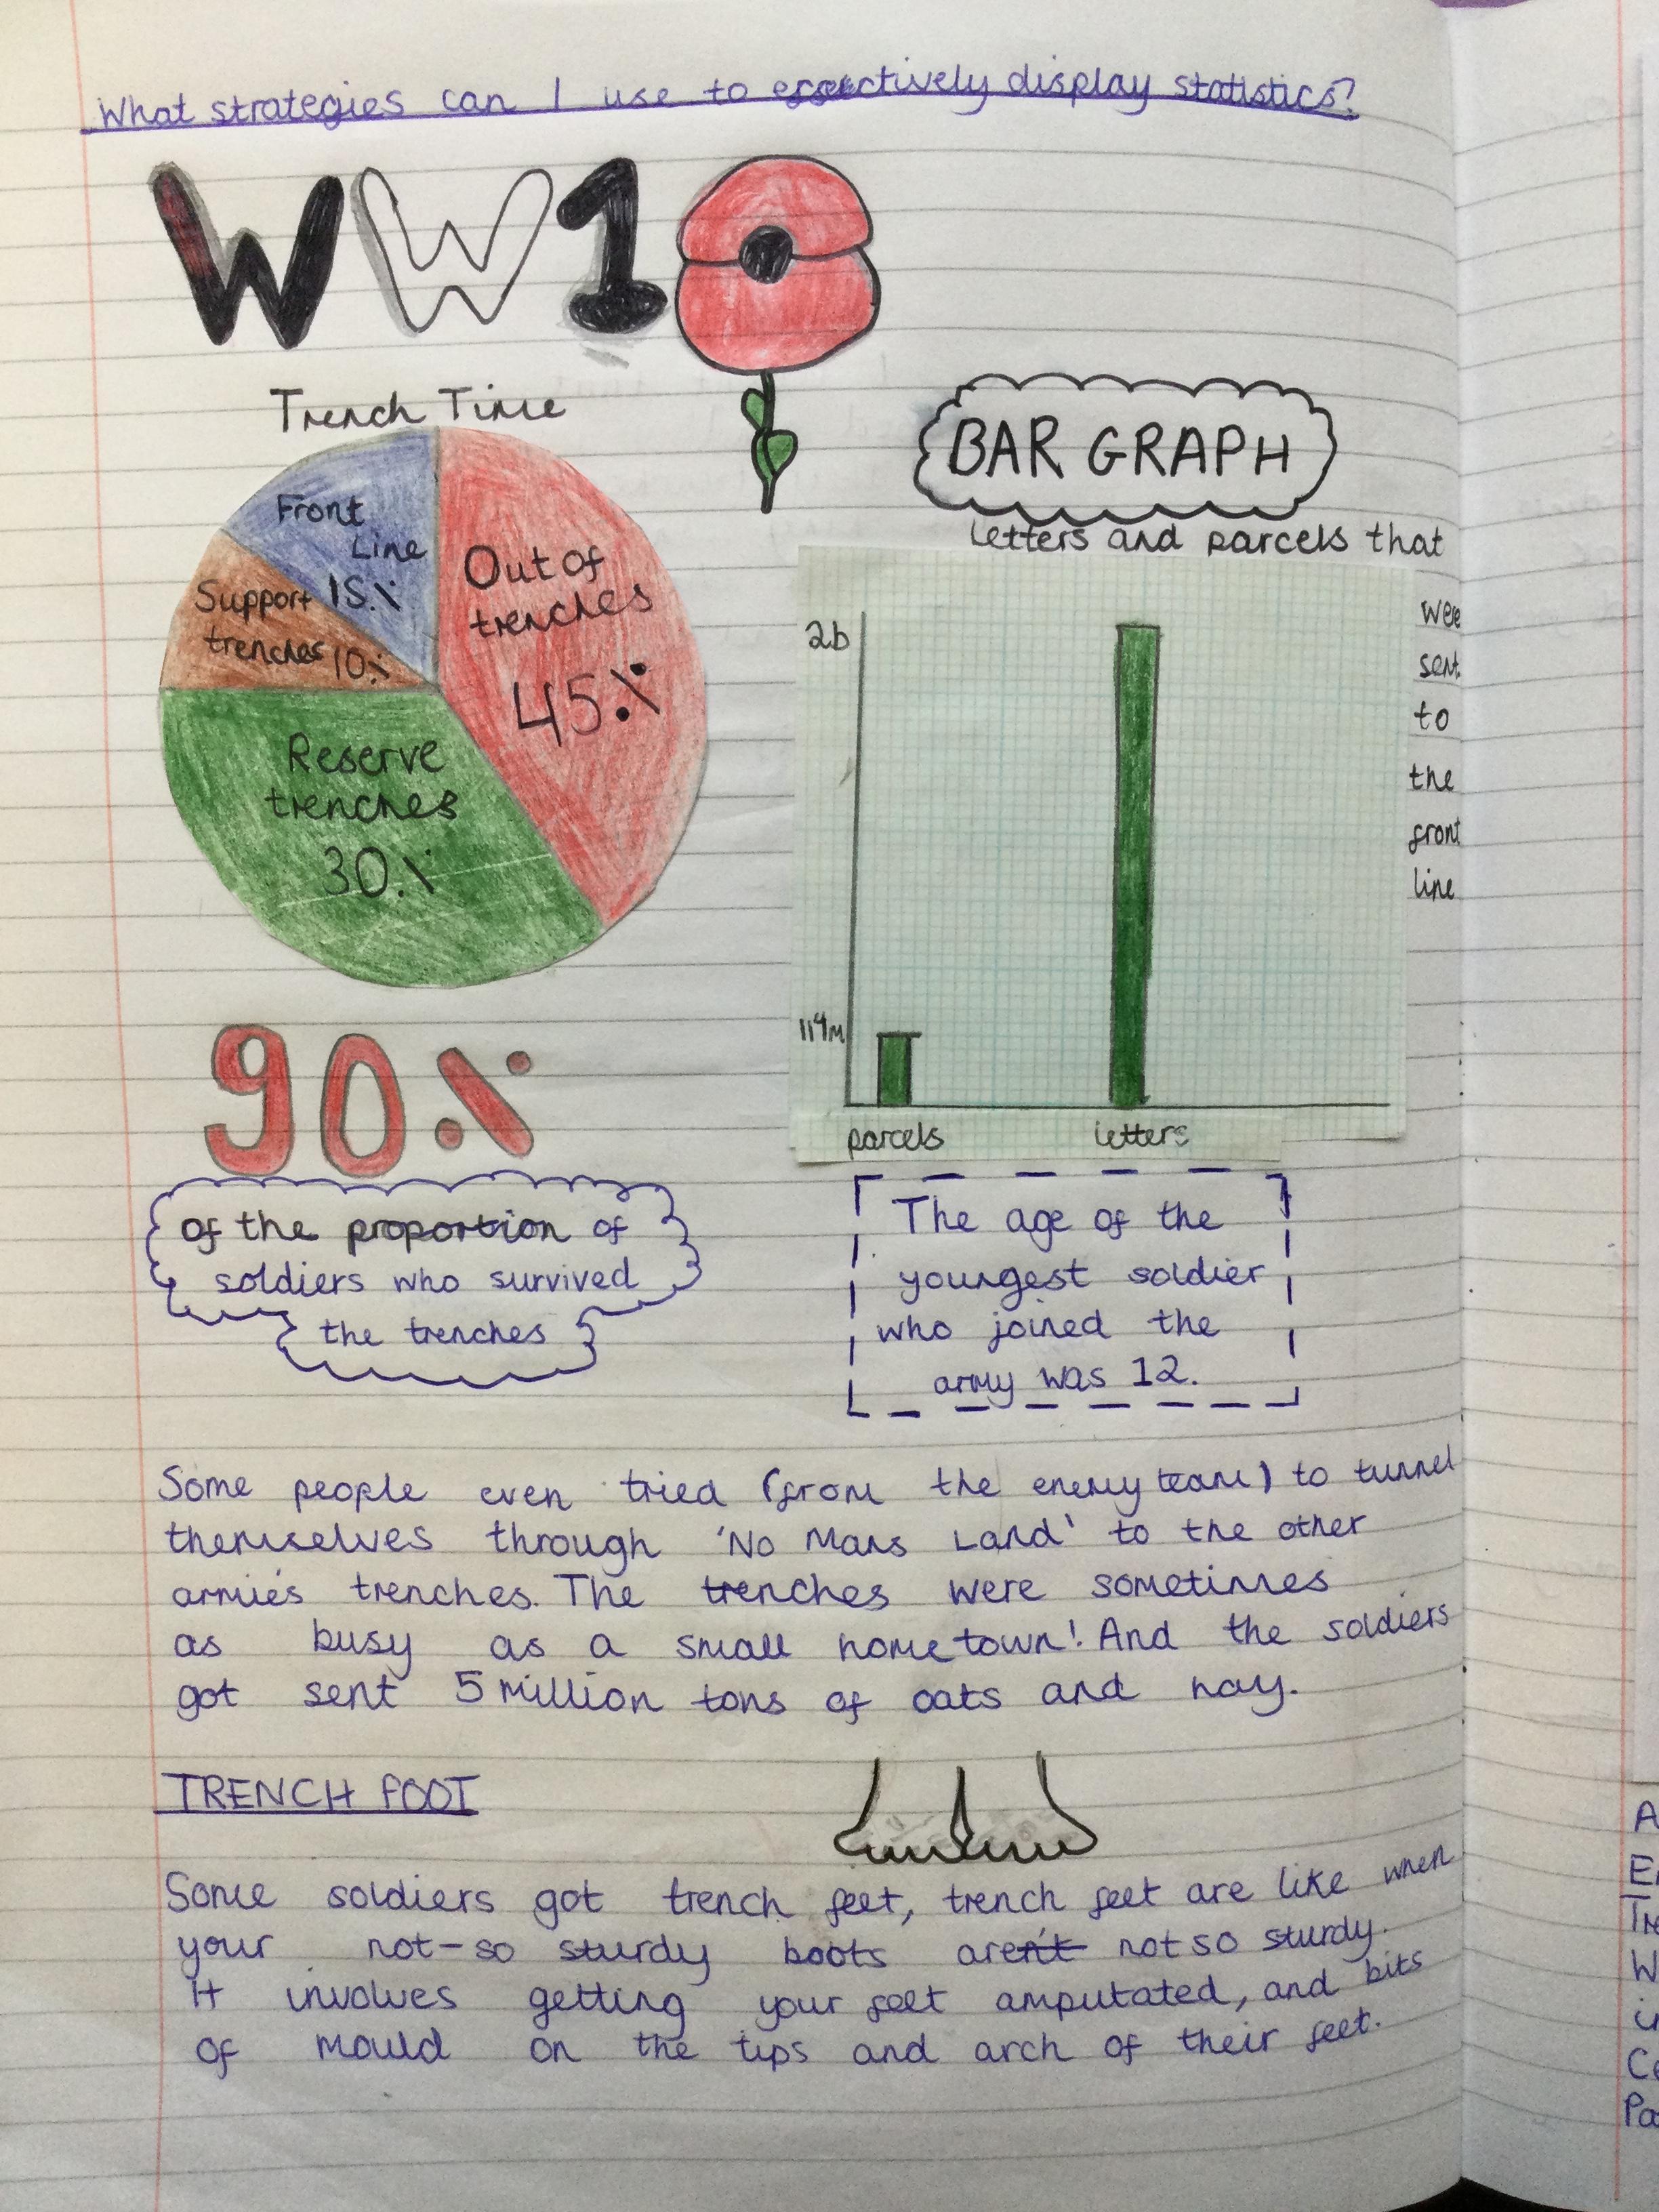 What strategies can I use to effectively display statistics?
WW1
Trench Time
Front
Line
15%
Support
trenches 10%
Out of
trenches
45%
Reserve
trenches
30%
BAR GRAPH
Letters and parcels that
were
sent
to
the
front
line
2b
114M
parcels
letters
90%
of the proportion of
soldiers who survived
the trenches
The age of the
youngest soldier
who joined the
army was 12.
Some people even tried (from the enemy team) to tunnel
themselves through 'No Mans Land' to the other
armie's trenches. The trenches were sometimes
as busy as a small home town! And the soldiers
got sent 5 million tons of oats and hay.
TRENCH FOOT
Some soldiers got trench feet, trench feet are like when
your not-so sturdy boots aren't not so sturdy.
It involves getting your feet amputated, and bits
of mould on the tips and arch of their feet.
A
W